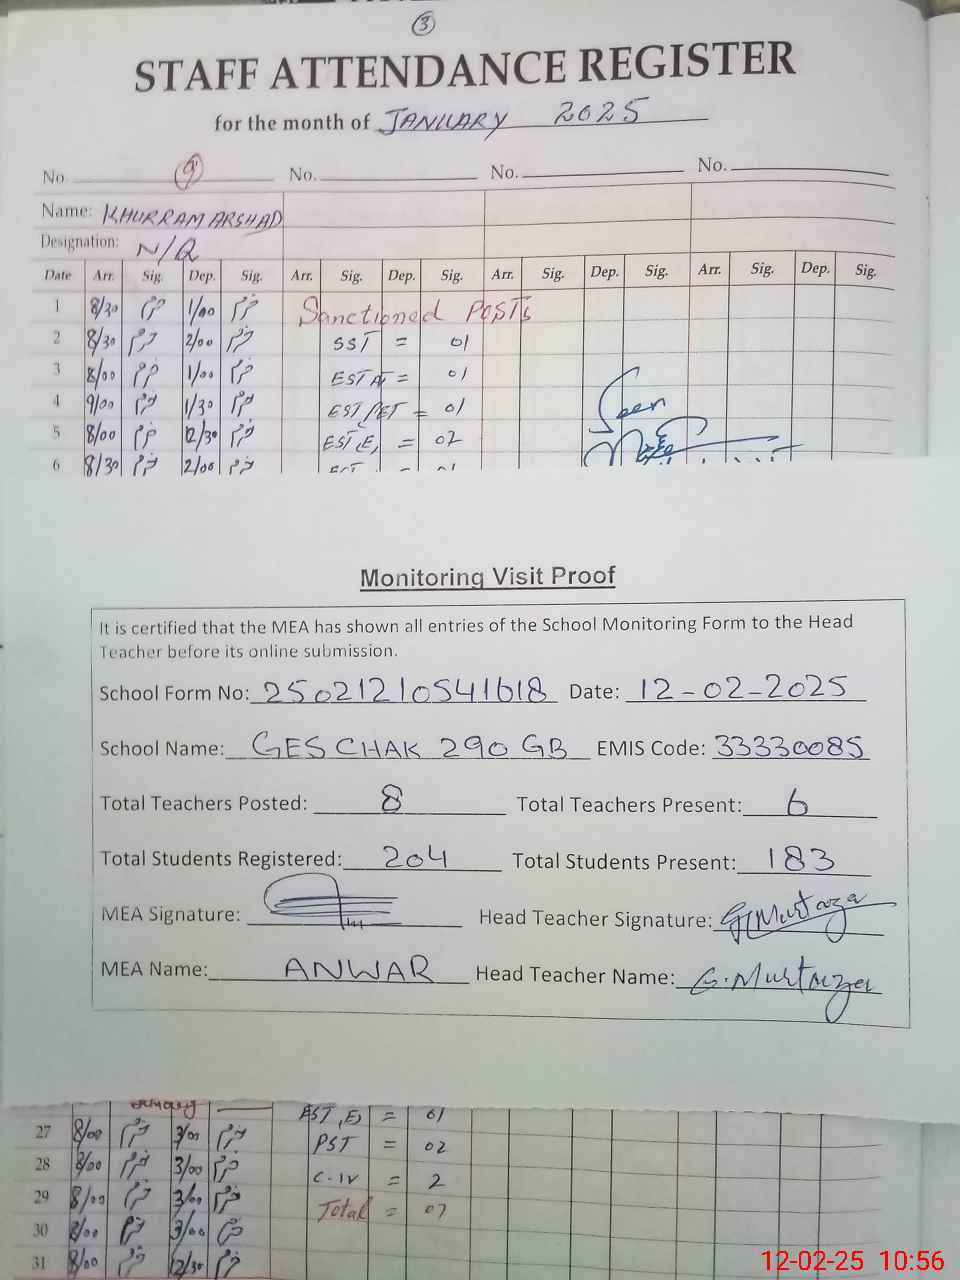 3
STAFF ATTENDANCE REGISTER
for the month of JANUARY 2025
No. 9 No. No. No.
Name: KHURRAM ARSHAD
Designation: N/Q
Date Arr. Sig. Dep. Sig. Arr. Sig. Dep. Sig. Arr. Sig. Dep. Sig. Arr. Sig. Dep. Sig.
1 8/30 1/00 Sanctioned POSTs
2 8/30 2/00 SST = 01
3 8/00 1/00 EST AT = 01
4 9/00 1/30 EST PET = 01 Seen
5 8/00 12/30 EST(E) = 02
6 8/30 2/00
Monitoring Visit Proof
It is certified that the MEA has shown all entries of the School Monitoring Form to the Head
Teacher before its online submission.
School Form No: 25021210541618 Date: 12-02-2025
School Name: GES CHAK 290 GB EMIS Code: 33330085
Total Teachers Posted: 8 Total Teachers Present: 6
Total Students Registered: 204 Total Students Present: 183
MEA Signature: Head Teacher Signature: G Murtaza
MEA Name: ANWAR Head Teacher Name: G. Murtaza
= 01
27 8/00 3/00 PST = 02
28 8/00 3/00 C-IV = 2
29 8/00 3/00 Total = 07
30 8/00 3/00
31 8/00 12/30
12-02-25 10:56